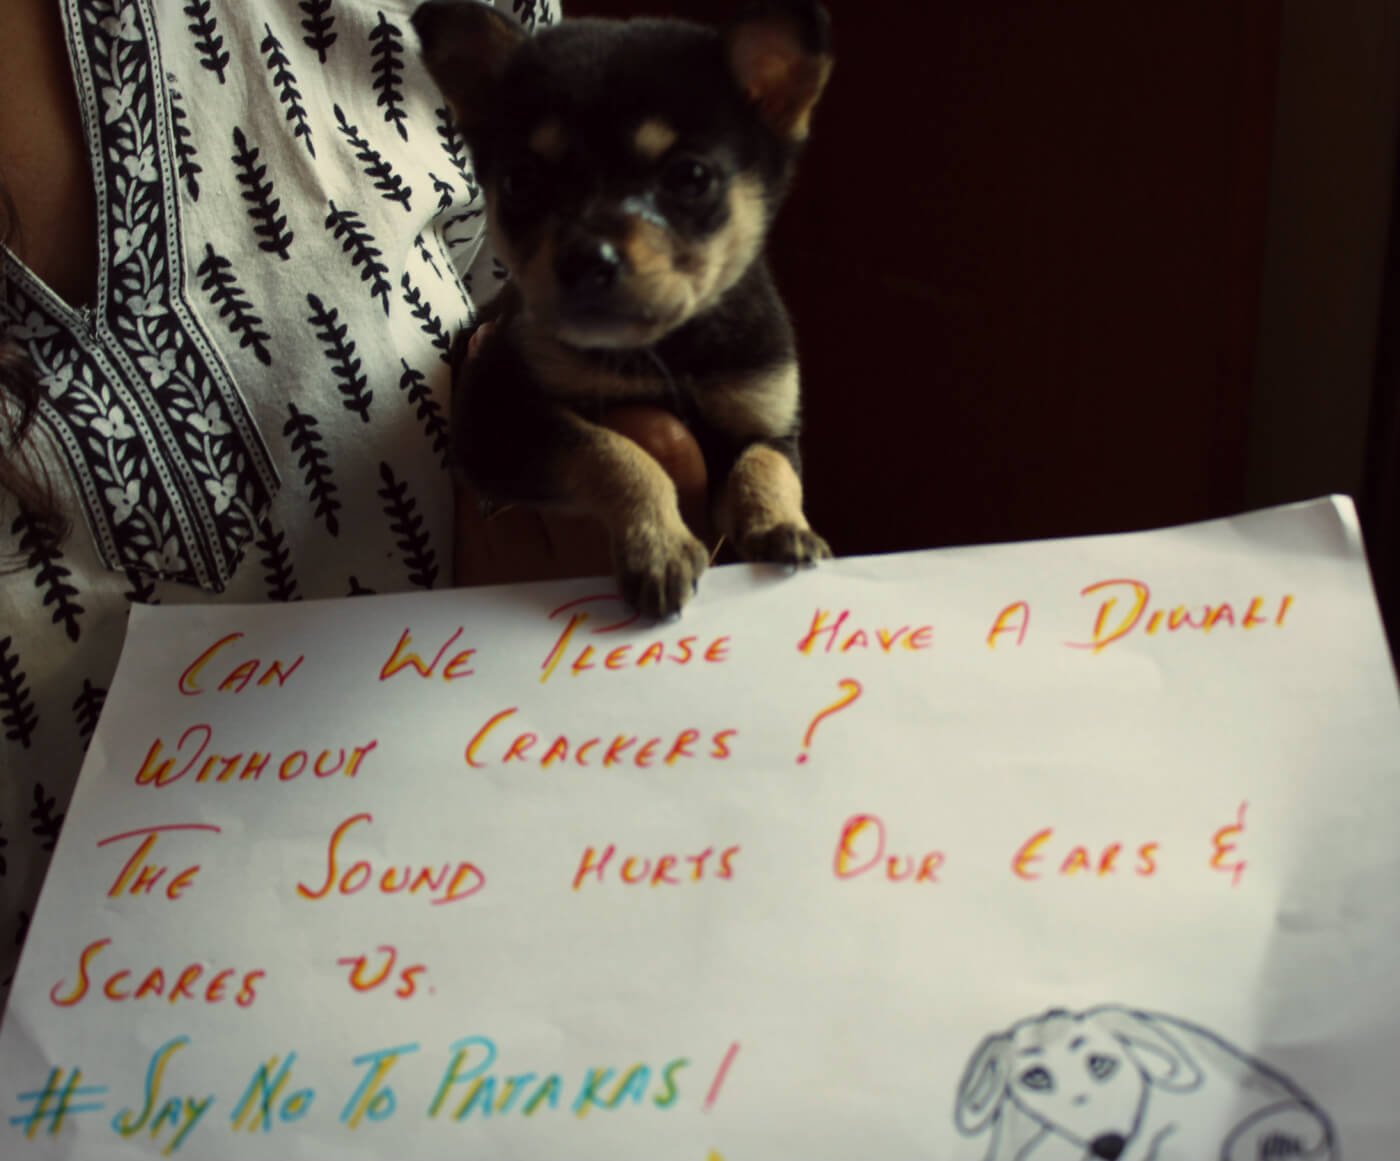 Can We Please Have A Diwali
Without Crackers ?
The Sound Hurts Our Ears &
Scares Us.
# Say No To Patakas!